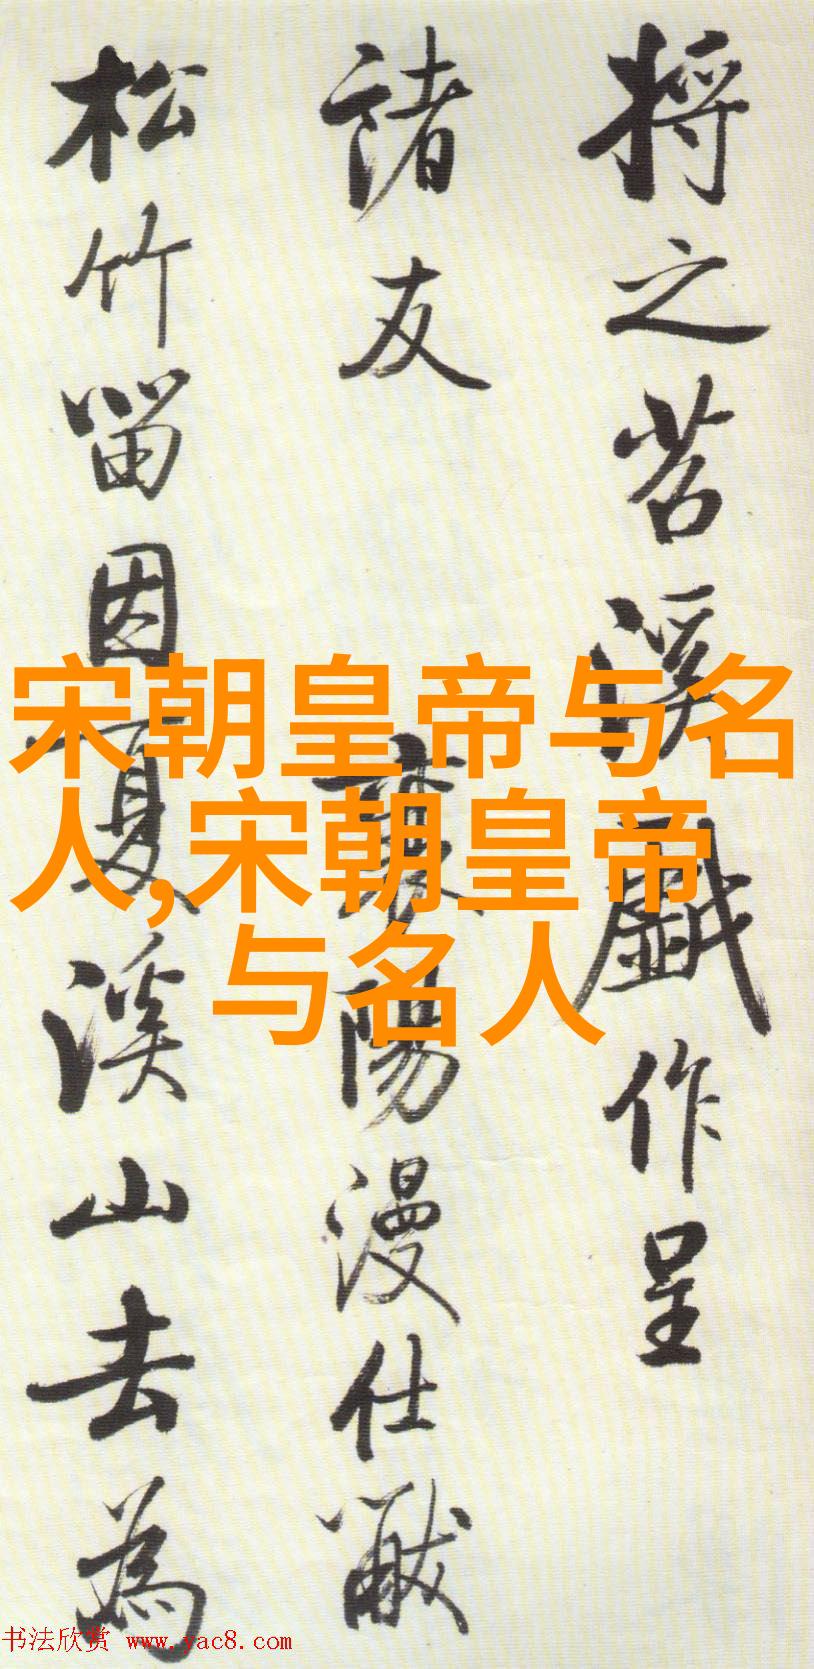 将之苕溪戲作呈
諸友
襄陽漫仕黻
松竹留因夏溪山去為
宋朝皇帝与名
人,宋朝皇帝
与名人
书法欣赏 www.yac8.com